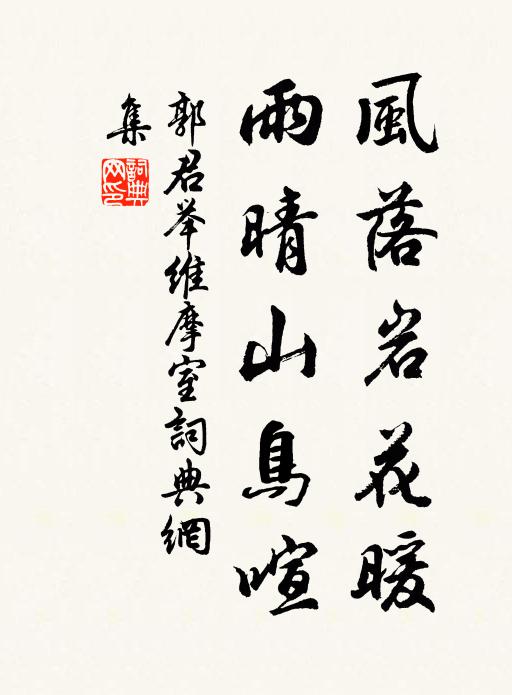 風落岩花暖
雨晴山鳥喧
郭君举維摩室詞典網
集
詞典網印